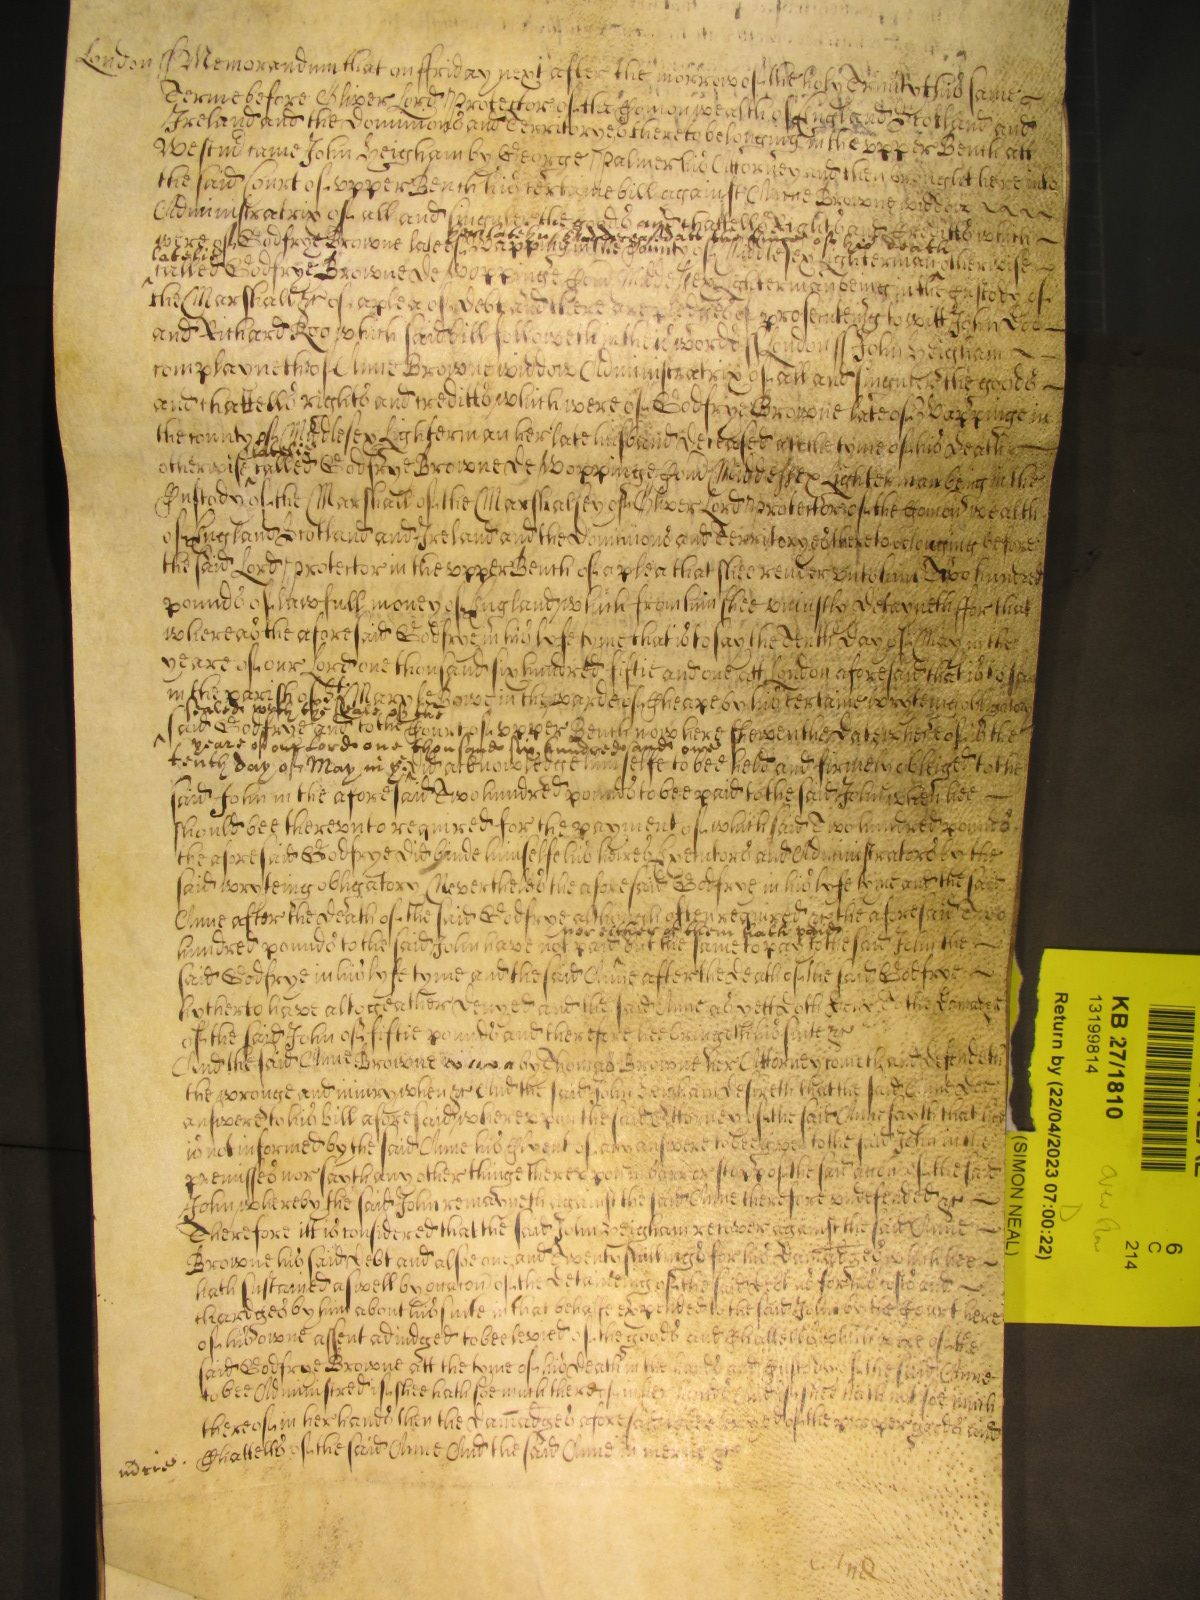 London ss Memorandum that on ffriday next after the morrow of the holy Trinity this same
Terme before Oliver Lord Protector of the Comonwealth of England Scotland and
Ireland and the Dominions and Territoryes thereto belonging in the upper Bench att
Westm came John Heigham by George Palmer his Attorney and then brought here into
the said Court of upper Bench his certaine bill against Anne Browne widdow
Administratrix of all and singuler the goods and chattells Rights and Creditts which
were of Godfrye Browne late of Wappinge in the County of Middlesex Lighterman otherwise
her late husband deceased att the tyme of his death
latelie
called Godfrye Browne de Woppinge Com Middlesex Lighterman being in the Custody of
the Marshall &c of a plea of debt and there are pledges of prosecuting to witt John Doe
and Richard Roo which said bill followeth in these words ss London ss John Heigham
complayneth of Anne Browne widdow Administratrix of all and singuler the goods
and chattells rights and creditts which were of Godfrye Browne late of Wappinge in
the county of Middlesex Lighterman her late husband deceased att the tyme of his death
latelie
otherwise called Godfrye Browne de Woppinge Com Middlesex Lighterman being in the
Custody of the Marshall of the Marshalsey of Oliver Lord Protector of the Comonwealth
of England Scotland and Ireland and the Dominions and Territoryes thereto belonging before
the said Lord Protector in the upper Bench of a plea that shee render unto him Two hundred
pounds of lawfull money of England which from him shee uniustly detayneth ffor that
whereas the aforesaid Godfrye in his lyfe tyme that is to say the Tenth day of May in the
yeare of our Lord one thousand six hundred fiftie and one att London aforesaid that is to say
in the parish of St Mary le Bowe in the warde of Cheape by his certaine wryteing obligatory
sealed with the seale of the
said Godfrye and to the Court of upper Bench now here shewen the date whereof is the
yeare of our Lord one thousand six hundred and one
tenth day of May in ye did acknowledge himselfe to bee held and firmely obleiged to the
said John in the aforesaid Two hundred pounds to bee paid to the said John when hee
should bee thereunto required for the payment of which said Two hundred pounds
the aforesaid Godfrye did binde himselfe his heires Executors and Administrators by the
said wryteing obligatory Neverthelesse the aforesaid Godfrye in his lyfe tyme and the said
Anne after the death of the said Godfrye although often required the aforesaid Two
nor either of them hath paid
hundred pounds to the said John have not paid but the same to pay to the said John the
said Godfrye in his lyfe tyme and the said Anne after the death of the said Godfrye
hytherto have altogeather denyed and the said Anne as yett doth deny to the damage
of the said John of fiftie pounds and therefore hee bringeth his suite &c
And the said Anne Browne by Thomas Browne her Attorney cometh and defendeth
the wronge and iniury when &c And the said John Heigham desireth that the said Anne doe
answere to his bill aforesaid whereupon the said Attorney of the said Anne sayth that hee
is not informed by the said Anne his Clyent of any answere to bee given to the said John in the
premisses nor sayth any other thinge thereupon in barr or stopp of the said accon of the said
John whereby the said John remayneth against the said Anne therefore undefended &c
Therefore itt is considered that the said John Heigham recover against the said Anne
Browne his said debt and alsoe one and Twenty shillings for his damages which hee
hath susteined aswell by occacon of the detaineing of the said debt as for his costs and
chardges by him about his suite in that behalfe expended to the said John by the Court here
of his owne assent adiudged to bee levied of the goods and Chattells which were of the
said Godfrye Browne att the tyme of his death in the hands and Custodie of the said Anne
to bee Administred if shee hath soe much thereof in her hands And if shee hath not soe much
thereof in her hands then the damages aforesaid to bee levyed of the proper goods and
Chattells of the said Anne And the said Anne in mercie &c
mcie
KB 27/1810
13199814
Return by (22/04/2023 07:00:22)
(SIMON NEAL)
6
C
214